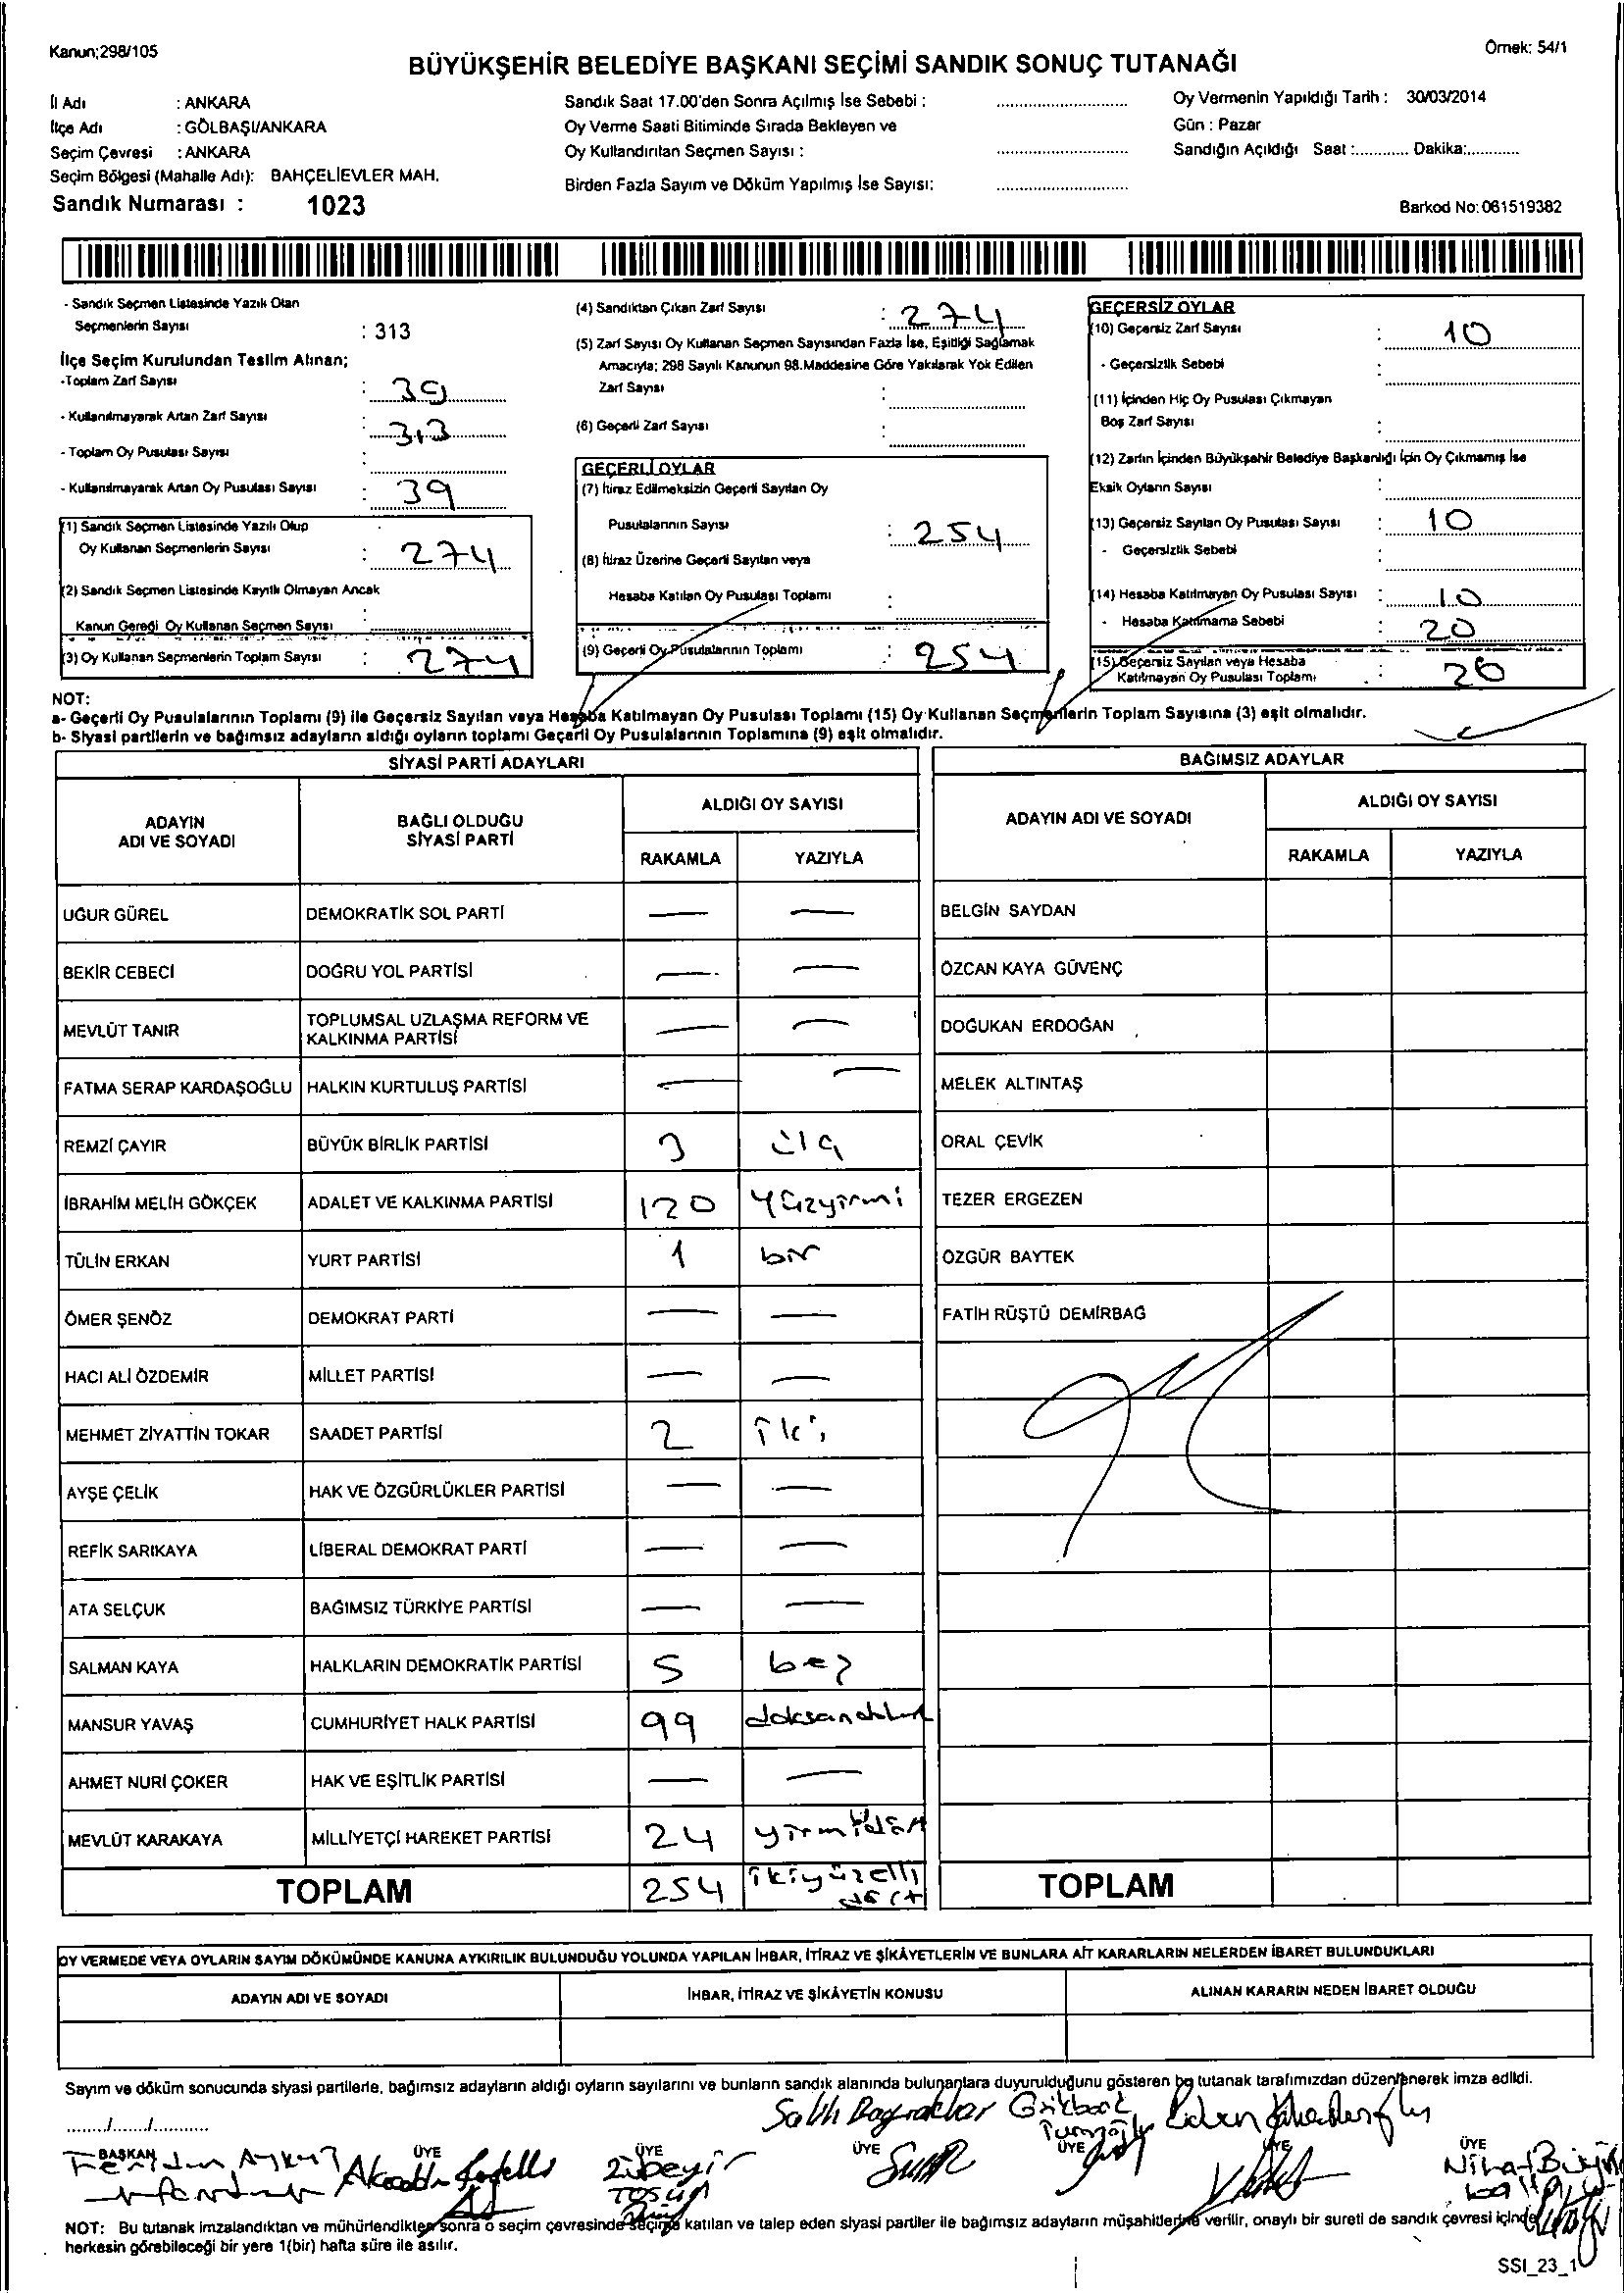 Kanun;298/105
Örnek: 54/1
BÜYÜKŞEHİR BELEDİYE BAŞKANI SEÇİMİ SANDIK SONUÇ TUTANAĞI
İl Adı : ANKARA
İlçe Adı : GÖLBAŞI/ANKARA
Seçim Çevresi : ANKARA
Seçim Bölgesi (Mahalle Adı): BAHÇELİEVLER MAH.
Sandık Numarası : 1023
Sandık Saat 17.00'den Sonra Açılmış İse Sebebi : ............
Oy Verme Saati Bitiminde Sırada Bekleyen ve
Oy Kullandırılan Seçmen Sayısı : ............
Birden Fazla Sayım ve Döküm Yapılmış İse Sayısı: ............
Oy Vermenin Yapıldığı Tarih : 30/03/2014
Gün : Pazar
Sandığın Açıldığı Saat :............ Dakika:............
Barkod No:061519382
- Sandık Seçmen Listesinde Yazılı Olan
Seçmenlerin Sayısı : 313
İlçe Seçim Kurulundan Teslim Alınan;
-Toplam Zarf Sayısı : 39
- Kullanılmayarak Artan Zarf Sayısı : 313
- Toplam Oy Pusulası Sayısı :
- Kullanılmayarak Artan Oy Pusulası Sayısı : 39
(1) Sandık Seçmen Listesinde Yazılı Olup
Oy Kullanan Seçmenlerin Sayısı : 274
(2) Sandık Seçmen Listesinde Kayıtlı Olmayan Ancak
Kanun Gereği Oy Kullanan Seçmen Sayısı :
(3) Oy Kullanan Seçmenlerin Toplam Sayısı : 274
(4) Sandıktan Çıkan Zarf Sayısı : 274
(5) Zarf Sayısı Oy Kullanan Seçmen Sayısından Fazla İse, Eşitliği Sağlamak
Amacıyla; 298 Sayılı Kanunun 98.Maddesine Göre Yakılarak Yok Edilen
Zarf Sayısı :
(6) Geçerli Zarf Sayısı :
GEÇERLİ OYLAR
(7) İtiraz Edilmeksizin Geçerli Sayılan Oy
Pusulalarının Sayısı : 254
(8) İtiraz Üzerine Geçerli Sayılan veya
Hesaba Katılan Oy Pusulası Toplamı :
(9) Geçerli Oy Pusulalarının Toplamı : 254
GEÇERSİZ OYLAR
(10) Geçersiz Zarf Sayısı : 10
- Geçersizlik Sebebi :
(11) İçinden Hiç Oy Pusulası Çıkmayan
Boş Zarf Sayısı :
(12) Zarfın İçinden Büyükşehir Belediye Başkanlığı İçin Oy Çıkmamış İse
Eksik Oyların Sayısı :
(13) Geçersiz Sayılan Oy Pusulası Sayısı : 10
- Geçersizlik Sebebi :
(14) Hesaba Katılmayan Oy Pusulası Sayısı : 10
- Hesaba Katılmama Sebebi : 20
(15) Geçersiz Sayılan veya Hesaba
Katılmayan Oy Pusulası Toplamı : 20
NOT:
a- Geçerli Oy Pusulalarının Toplamı (9) ile Geçersiz Sayılan veya Hesaba Katılmayan Oy Pusulası Toplamı (15) Oy Kullanan Seçmenlerin Toplam Sayısına (3) eşit olmalıdır.
b- Siyasi partilerin ve bağımsız adayların aldığı oyların toplamı Geçerli Oy Pusulalarının Toplamına (9) eşit olmalıdır.
SİYASİ PARTİ ADAYLARI
ADAYIN ADI VE SOYADI BAĞLI OLDUĞU SİYASİ PARTİ ALDIĞI OY SAYISI
RAKAMLA YAZIYLA
UĞUR GÜREL DEMOKRATİK SOL PARTİ — —
BEKİR CEBECİ DOĞRU YOL PARTİSİ — —
MEVLÜT TANIR TOPLUMSAL UZLAŞMA REFORM VE KALKINMA PARTİSİ — —
FATMA SERAP KARDAŞOĞLU HALKIN KURTULUŞ PARTİSİ — —
REMZİ ÇAYIR BÜYÜK BİRLİK PARTİSİ 3 üç
İBRAHİM MELİH GÖKÇEK ADALET VE KALKINMA PARTİSİ 120 Yüzyirmi
TÜLİN ERKAN YURT PARTİSİ 1 bir
ÖMER ŞENÖZ DEMOKRAT PARTİ — —
HACI ALİ ÖZDEMİR MİLLET PARTİSİ — —
MEHMET ZİYATTİN TOKAR SAADET PARTİSİ 2 iki
AYŞE ÇELİK HAK VE ÖZGÜRLÜKLER PARTİSİ — —
REFİK SARIKAYA LİBERAL DEMOKRAT PARTİ — —
ATA SELÇUK BAĞIMSIZ TÜRKİYE PARTİSİ — —
SALMAN KAYA HALKLARIN DEMOKRATİK PARTİSİ 5 beş
MANSUR YAVAŞ CUMHURİYET HALK PARTİSİ 99 doksandokuz
AHMET NURİ ÇOKER HAK VE EŞİTLİK PARTİSİ — —
MEVLÜT KARAKAYA MİLLİYETÇİ HAREKET PARTİSİ 24 yirmidört
TOPLAM 254 ikiyüzelli dört
BAĞIMSIZ ADAYLAR
ADAYIN ADI VE SOYADI ALDIĞI OY SAYISI
RAKAMLA YAZIYLA
BELGİN SAYDAN
ÖZCAN KAYA GÜVENÇ
DOĞUKAN ERDOĞAN
MELEK ALTINTAŞ
ORAL ÇEVİK
TEZER ERGEZEN
ÖZGÜR BAYTEK
FATİH RÜŞTÜ DEMİRBAĞ
TOPLAM
OY VERMEDE VEYA OYLARIN SAYIM DÖKÜMÜNDE KANUNA AYKIRILIK BULUNDUĞU YOLUNDA YAPILAN İHBAR, İTİRAZ VE ŞİKÂYETLERİN VE BUNLARA AİT KARARLARIN NELERDEN İBARET BULUNDUKLARI
ADAYIN ADI VE SOYADI İHBAR, İTİRAZ VE ŞİKÂYETİN KONUSU ALINAN KARARIN NEDEN İBARET OLDUĞU
Sayım ve döküm sonucunda siyasi partilerle, bağımsız adayların aldığı oyların sayılarını ve bunların sandık alanında bulunanlara duyurulduğunu gösteren bu tutanak tarafımızdan düzenlenerek imza edildi.
....../....../............
Salih Bayraktar
BAŞKAN ÜYE ÜYE ÜYE ÜYE ÜYE ÜYE
Zübeyir
TOSUN
NOT: Bu tutanak imzalandıktan ve mühürlendikten sonra o seçim çevresinde seçime katılan ve talep eden siyasi partiler ile bağımsız adayların müşahitlerine verilir, onaylı bir sureti de sandık çevresi içinde
herkesin görebileceği bir yere 1(bir) hafta süre ile asılır.
SSI_23_1